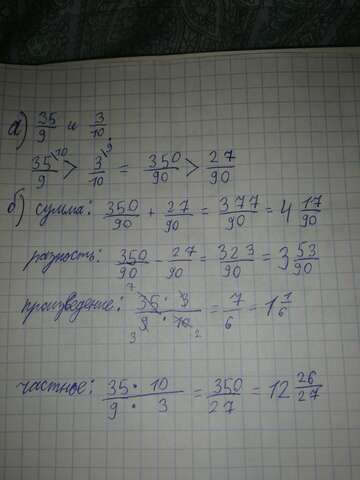 а) 35/9 и 3/10
35/9 \10 > 3/10 \9 = 350/90 > 27/90
б) сумма: 350/90 + 27/90 = 377/90 = 4 17/90
разность: 350/90 - 27/90 = 323/90 = 3 53/90
произведение: 35 7 · 3 / 9 3 · 10 2 = 7/6 = 1 1/6
частное: 35 · 10 / 9 · 3 = 350/27 = 12 26/27